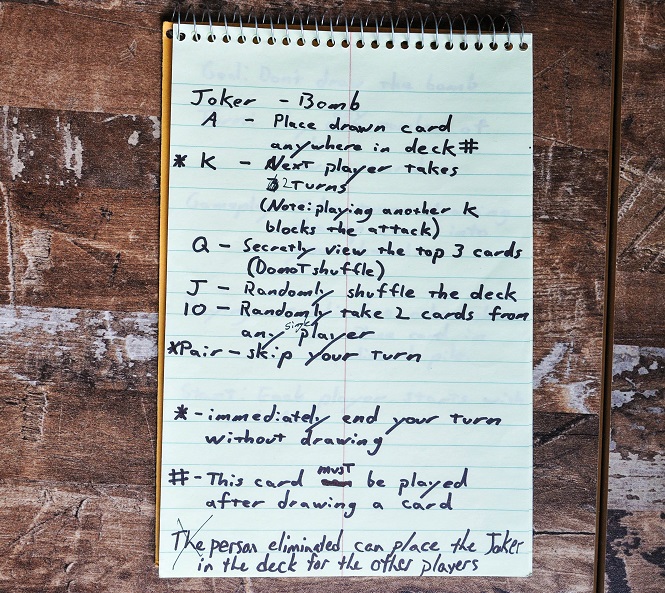 Joker - Bomb
A - Place drawn card
anywhere in deck #
* K - Next player takes
2 Turns
(Note: playing another K
blocks the attack)
Q - Secretly view the top 3 cards
(Do not shuffle)
J - Randomly shuffle the deck
10 - Randomly take 2 cards from
any single player
*Pair - skip your turn
* - immediately end your turn
without drawing
# - This card must be played
after drawing a card
The person eliminated can place the Joker
in the deck for the other players